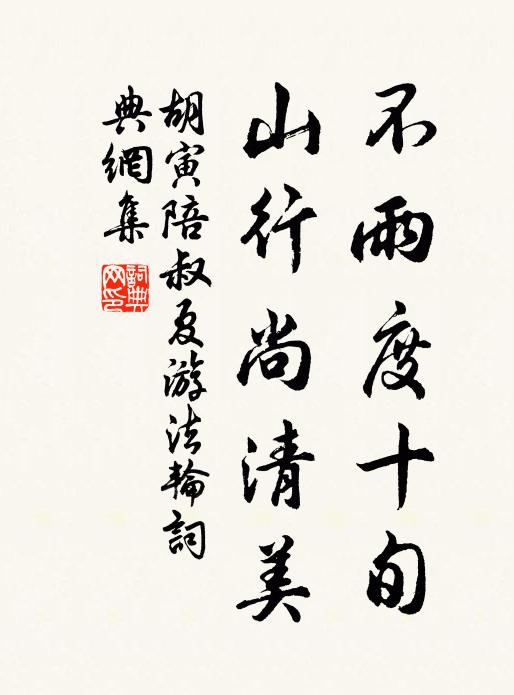 不雨度十旬
山行尚清美
胡寅陪叔夏游法輪詞
典網集
詞典
网印